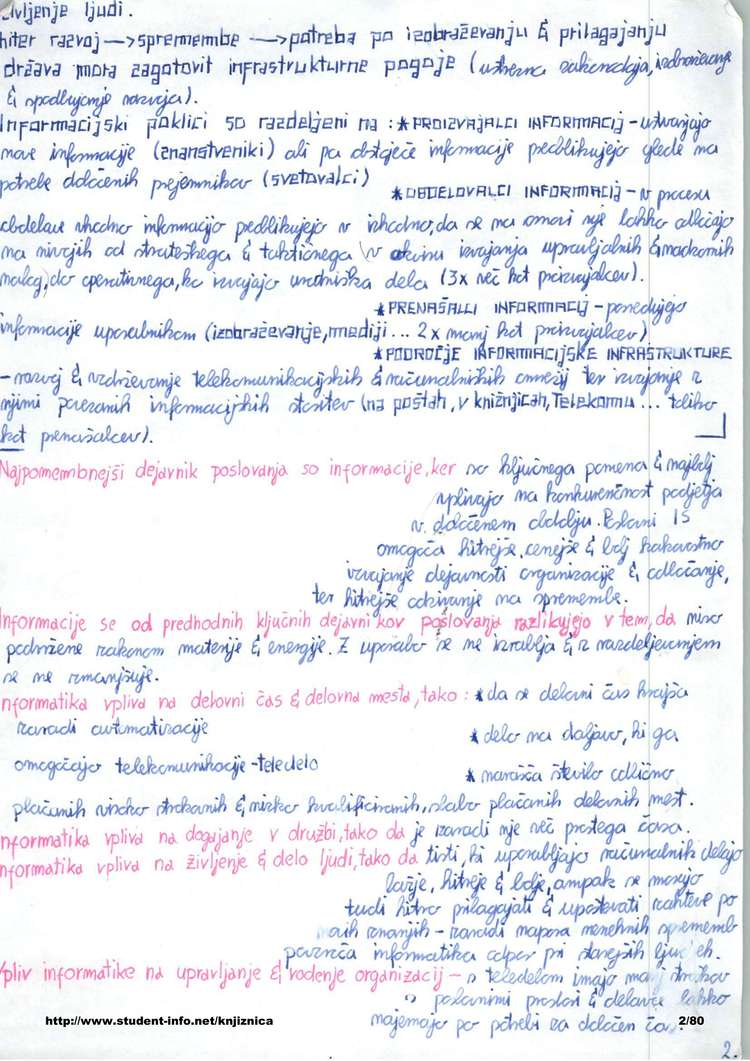 življenje ljudi.
hiter razvoj —> spremembe —> potreba po izobraževanju & prilagajanju
država mora zagotovit infrastrukturne pogoje (ustrezna zakonodaja, izobraževanje
& spodbujanje razvoja).
Informacijski poklici so razdeljeni na : * PROIZVAJALCI INFORMACIJ - ustvarjajo
nove informacije (znanstveniki) ali pa obstoječe informacije preoblikujejo glede na
potrebe določenih prejemnikov (svetovalci)
* OBDELOVALCI INFORMACIJ - v procesu
obdelave vhodno informacijo preoblikujejo v izhodno, da se na osnovi nje lahko odločajo
na nivojih od strateškega & taktičnega v okviru izvajanja upravljalnih & nadzornih
nalog, do operativnega, ko izvajajo uradniška dela (3x več kot proizvajalcev).
* PRENAŠALCI INFORMACIJ - posredujejo
informacije uporabnikom (izobraževanje, mediji ... 2 x manj kot proizvajalcev)
* PODROČJE INFORMACIJSKE INFRASTRUKTURE
- razvoj & vzdrževanje telekomunikacijskih & računalniških omrežij ter izvajanje z
njimi povezanih informacijskih storitev (na poštah, v knjižnicah, Telekomu ... toliko
kot prenašalcev).
Najpomembnejši dejavnik poslovanja so informacije, ker so ključnega pomena & najbolj
vplivajo na konkurenčnost podjetja
v določenem obdobju. Poslovni IS
omogoča hitrejše, cenejše & bolj kakovostno
izvajanje dejavnosti organizacije & odločanje,
ter hitrejše odzivanje na spremembe.
Informacije se od predhodnih ključnih dejavnikov poslovanja razlikujejo v tem, da niso
podvržene zakonom materije & energije. Z uporabo se ne izrablja & z razdeljevanjem
se ne zmanjšuje.
nformatika vpliva na delovni čas & delovna mesta, tako : * da se delovni čas krajša
zaradi avtomatizacije * delo na daljavo, ki ga
omogočajo telekomunikacije - teledelo * narašča število odlično
plačanih visoko strokovnih & nizko kvalificiranih, slabo plačanih delovnih mest.
nformatika vpliva na dogajanje v družbi, tako da je zaradi nje več prostega časa.
nformatika vpliva na življenje & delo ljudi, tako da tisti, ki uporabljajo računalnik delajo
lažje, hitreje & bolje, ampak se morajo
tudi hitro prilagajati & upoštevati zahteve po
znanjih - zaradi napora nenehnih sprememb
povzroča informatika odpor pri starejših ljudeh.
Vpliv informatike na upravljanje & vodenje organizacij - s teledelom imajo manj stroškov
s poslovnimi prostori & delavce lahko
najemajo po potrebi za določen čas.
http://www.student-info.net/knjiznica 2/80
2.